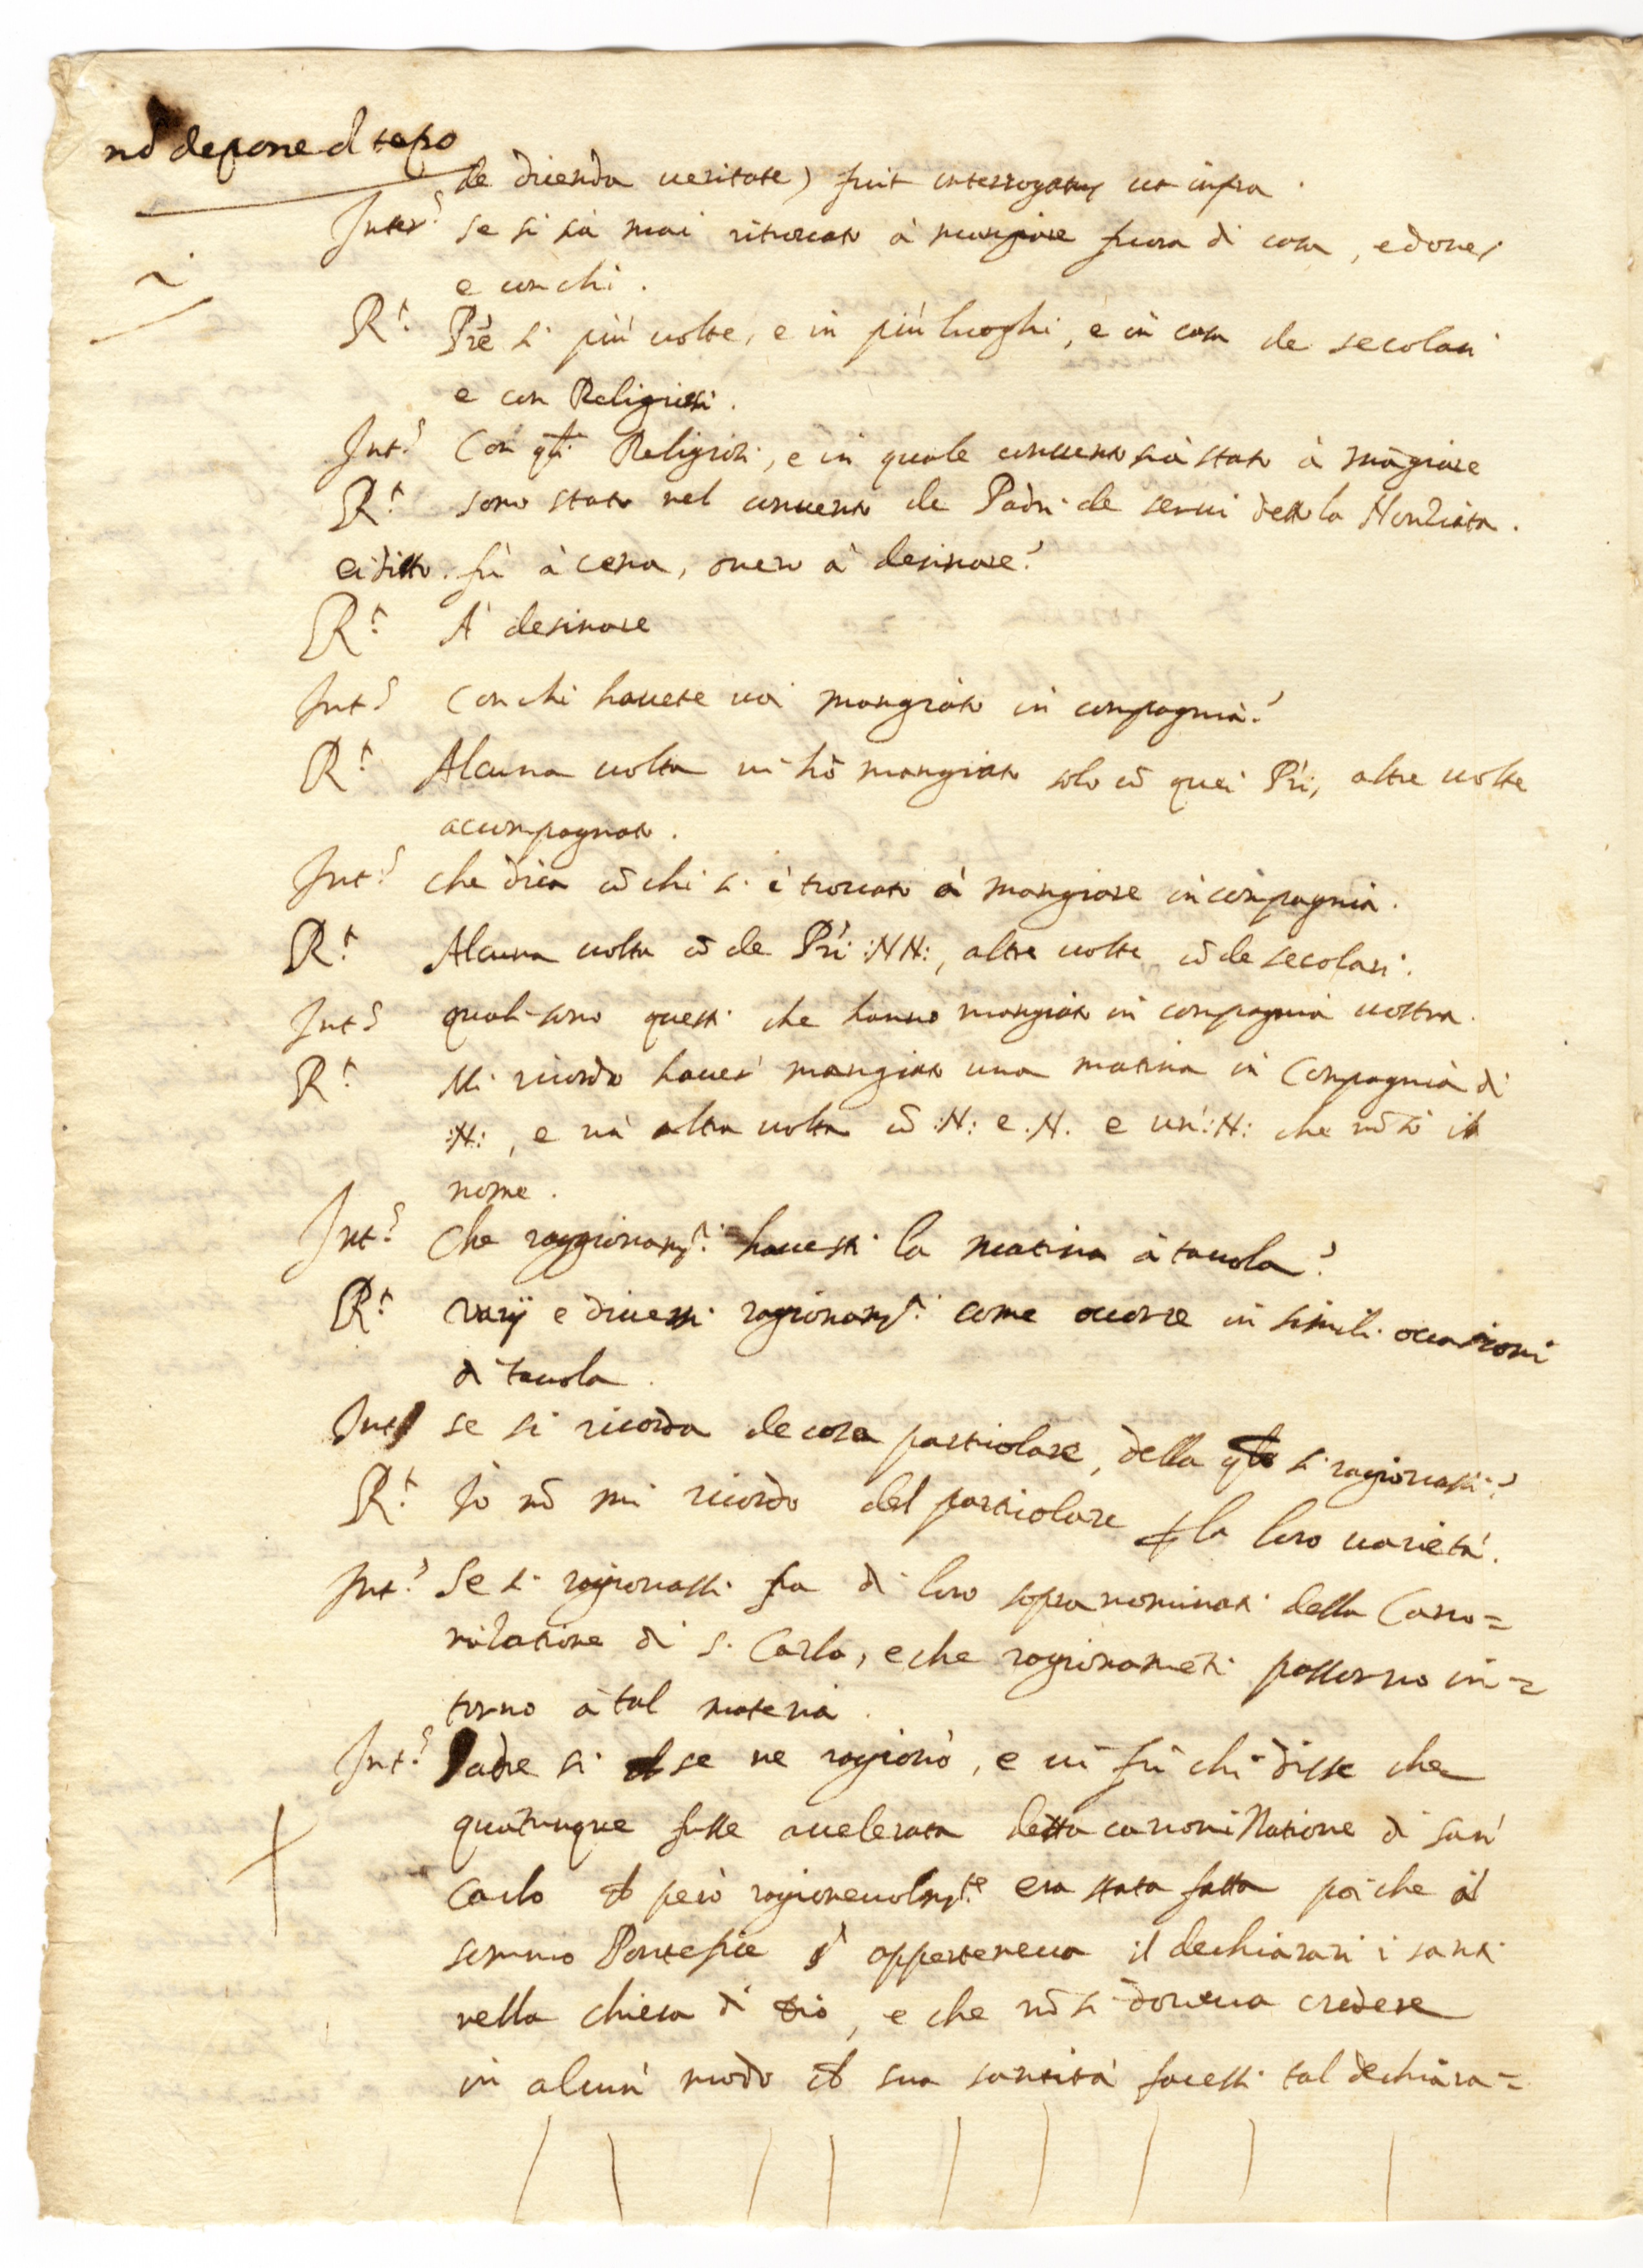 nõ depone el tepo
de dicenda ueritate) fuit interrogatus ut infra.
Inter? se si sia mai ritrouato à mangiare fuora di casa, e doue,
e con chi.
R.t Prẽ si più uolte, e in più luoghi, e in casa de secolari
e con Religiosi.
Int? Con qti Religiosi, e in quale conuento sia stato à mãgiare
R.t sono stato nel conuento de Padri de serui detto la Nontiata.
ei ditto. fù à cena, ouero à desinare?
R.t A' desinare
Int? Con chi hauete uoi mangiato in compagnia?
R.t Alcuna uolta ui hò mangiato solo cõ quei Pri, altre uolte
accompagnato.
Int? che dica cõ chi si è trouato à mangiare in compagnia.
R.t Alcuna uolta cõ de Pri :NN:, altre uolte cõ de secolari.
Int? quali sono questi che hanno mangiato in compagnia uostra.
R.t Mi ricordo hauer mangiato una matina in Compagnia di
:N:, e un' altra uolta cõ :N: e .N. e un' :N: che nõ sò il
nome.
Int? Che raggionam.ti hauesti la matina à tauola?
R.t varij e diuersi ragionam.ti come occorre in simili occasioni
di tauola.
Int? se si ricorda de cosa particolare, della qle si ragionassi?
R.t Io nõ mi ricordo del particolare p la loro uarietà.
Int? Se si ragionassi fra di loro sopranominati della Cano=
nizatione di S. Carlo, e che ragionamẽti passorno in=
torno à tal materia.
Int? Padre si se ne ragionò, e ui fù chi disse che
quatunque fusse accelerata detta canonizatione di san'
Carlo però ragioneuolm.te era stata fatta poi che al
sommo Pontefice apperteneua il dechiarari i santi
nella chiesa di Dio, e che nõ si doueua credere
in alcun' modo sua santità facessi tal dechiara=